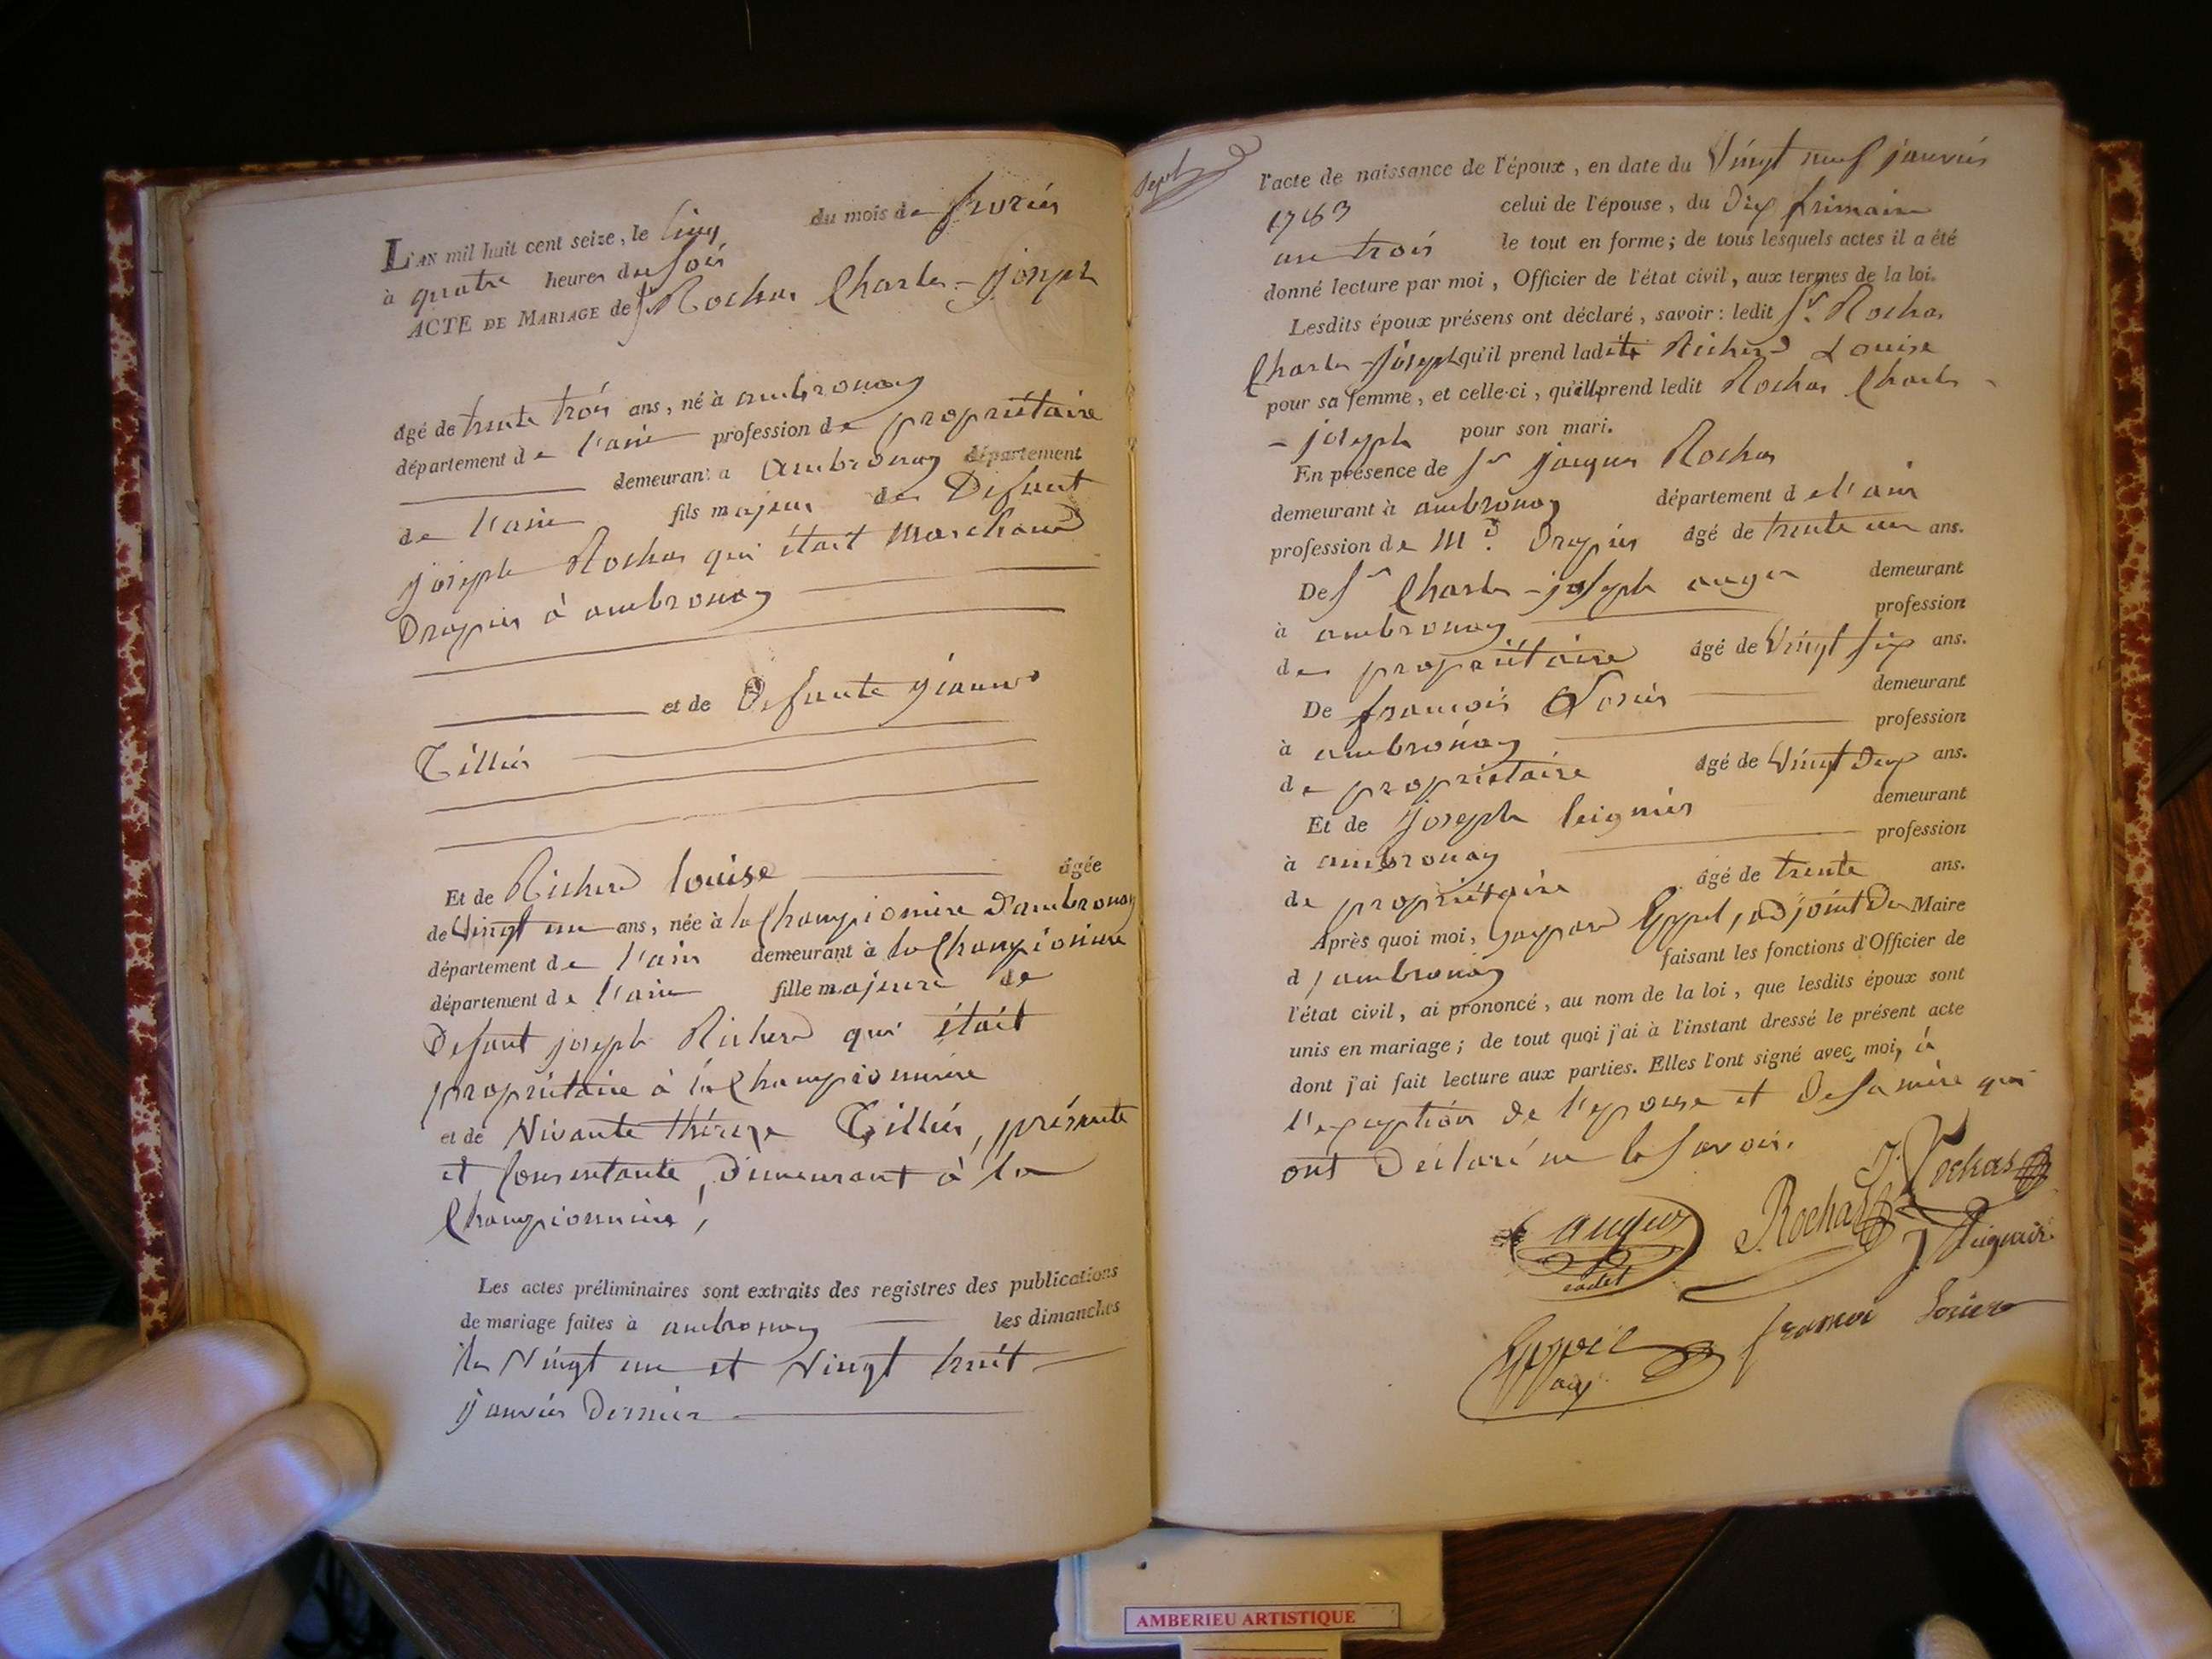 L'AN mil huit cent seize, le Cinq du mois de fevrier
à quatre heures du Soir
ACTE DE MARIAGE de Sr Rochas Charles-Joseph
âgé de trente trois ans, né à ambronay
département de l'ain profession de propriétaire
demeurant a ambronay département
de l'ain fils majeur de Defunt
joseph Rochas qui était Marchand
Drapier à ambronay
et de Defunte jeanne
Tillier
Et de Richerd louise âgée
de Vingt un ans, née à la Championniere d'ambronay
département de l'ain demeurant à la Championiere
département de l'ain fille majeure de
Defunt joseph Richerd qui était
propriétaire à la Championniere
et de Vivante thérèze Tillier, présente
et Consentante, Demeurant à la
Championniere,
Les actes préliminaires sont extraits des registres des publications
de mariage faites à ambronay les dimanches
les Vingt un et Vingt huit
janvier Dernier
Sept
l'acte de naissance de l'époux, en date du Vingt neuf janvier
1783 celui de l'épouse, du Dix frimaire
an trois le tout en forme; de tous lesquels actes il a été
donné lecture par moi, Officier de l'état civil, aux termes de la loi.
Lesdits époux présens ont déclaré, savoir: ledit Sr. Rochas
Charles-Joseph qu'il prend ladite Richerd Louise
pour sa femme, et celle-ci, qu'elle prend ledit Rochas Charles-
-joseph pour son mari.
En présence de Sr jacques Rochas
demeurant à ambronay département de l'ain
profession de Md. Drapier âgé de trente un ans.
De Sr Charles-joseph auger demeurant
à ambronay profession
de propriétaire âgé de Vingt six ans.
De françois Sorier demeurant
à ambronay profession
de propriétaire âgé de Vingt Deux ans.
Et de Joseph Peignier demeurant
à ambronay profession
de propriétaire âgé de trente ans.
Après quoi moi, Gaspard Eyppel, adjoint Du Maire
d'ambronay faisant les fonctions d'Officier de
l'état civil, ai prononcé, au nom de la loi, que lesdits époux sont
unis en mariage; de tout quoi j'ai à l'instant dressé le présent acte
dont j'ai fait lecture aux parties. Elles l'ont signé avec moi, à
l'exception de l'epouse et De sa mère qui
ont Déclaré ne le Savoir.
J. Rochas
auger Rochas
cadet
françoi Sorier
AMBERIEU ARTISTIQUE